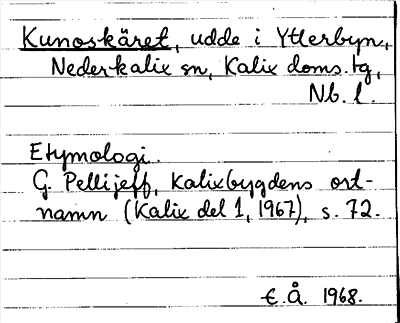 Kunoskäret, udde i Ytterbyn,
Nederkalix sn, Kalix doms.tg,
Nb. l.
Etymologi.
G. Pellijeff, Kalixbygdens ort-
namn (Kalix del 1, 1967), s. 72.
E.Å. 1968.